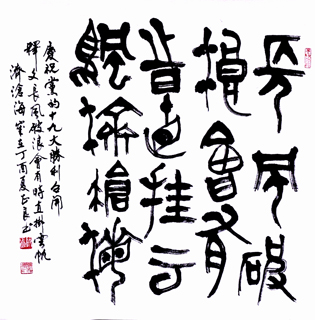 長風破
浪會有
時直挂云
帆濟滄海
慶祝黨的十九大勝利召開
釋文長風破浪會有時直掛雲帆
濟滄海歲在丁酉夏正良书